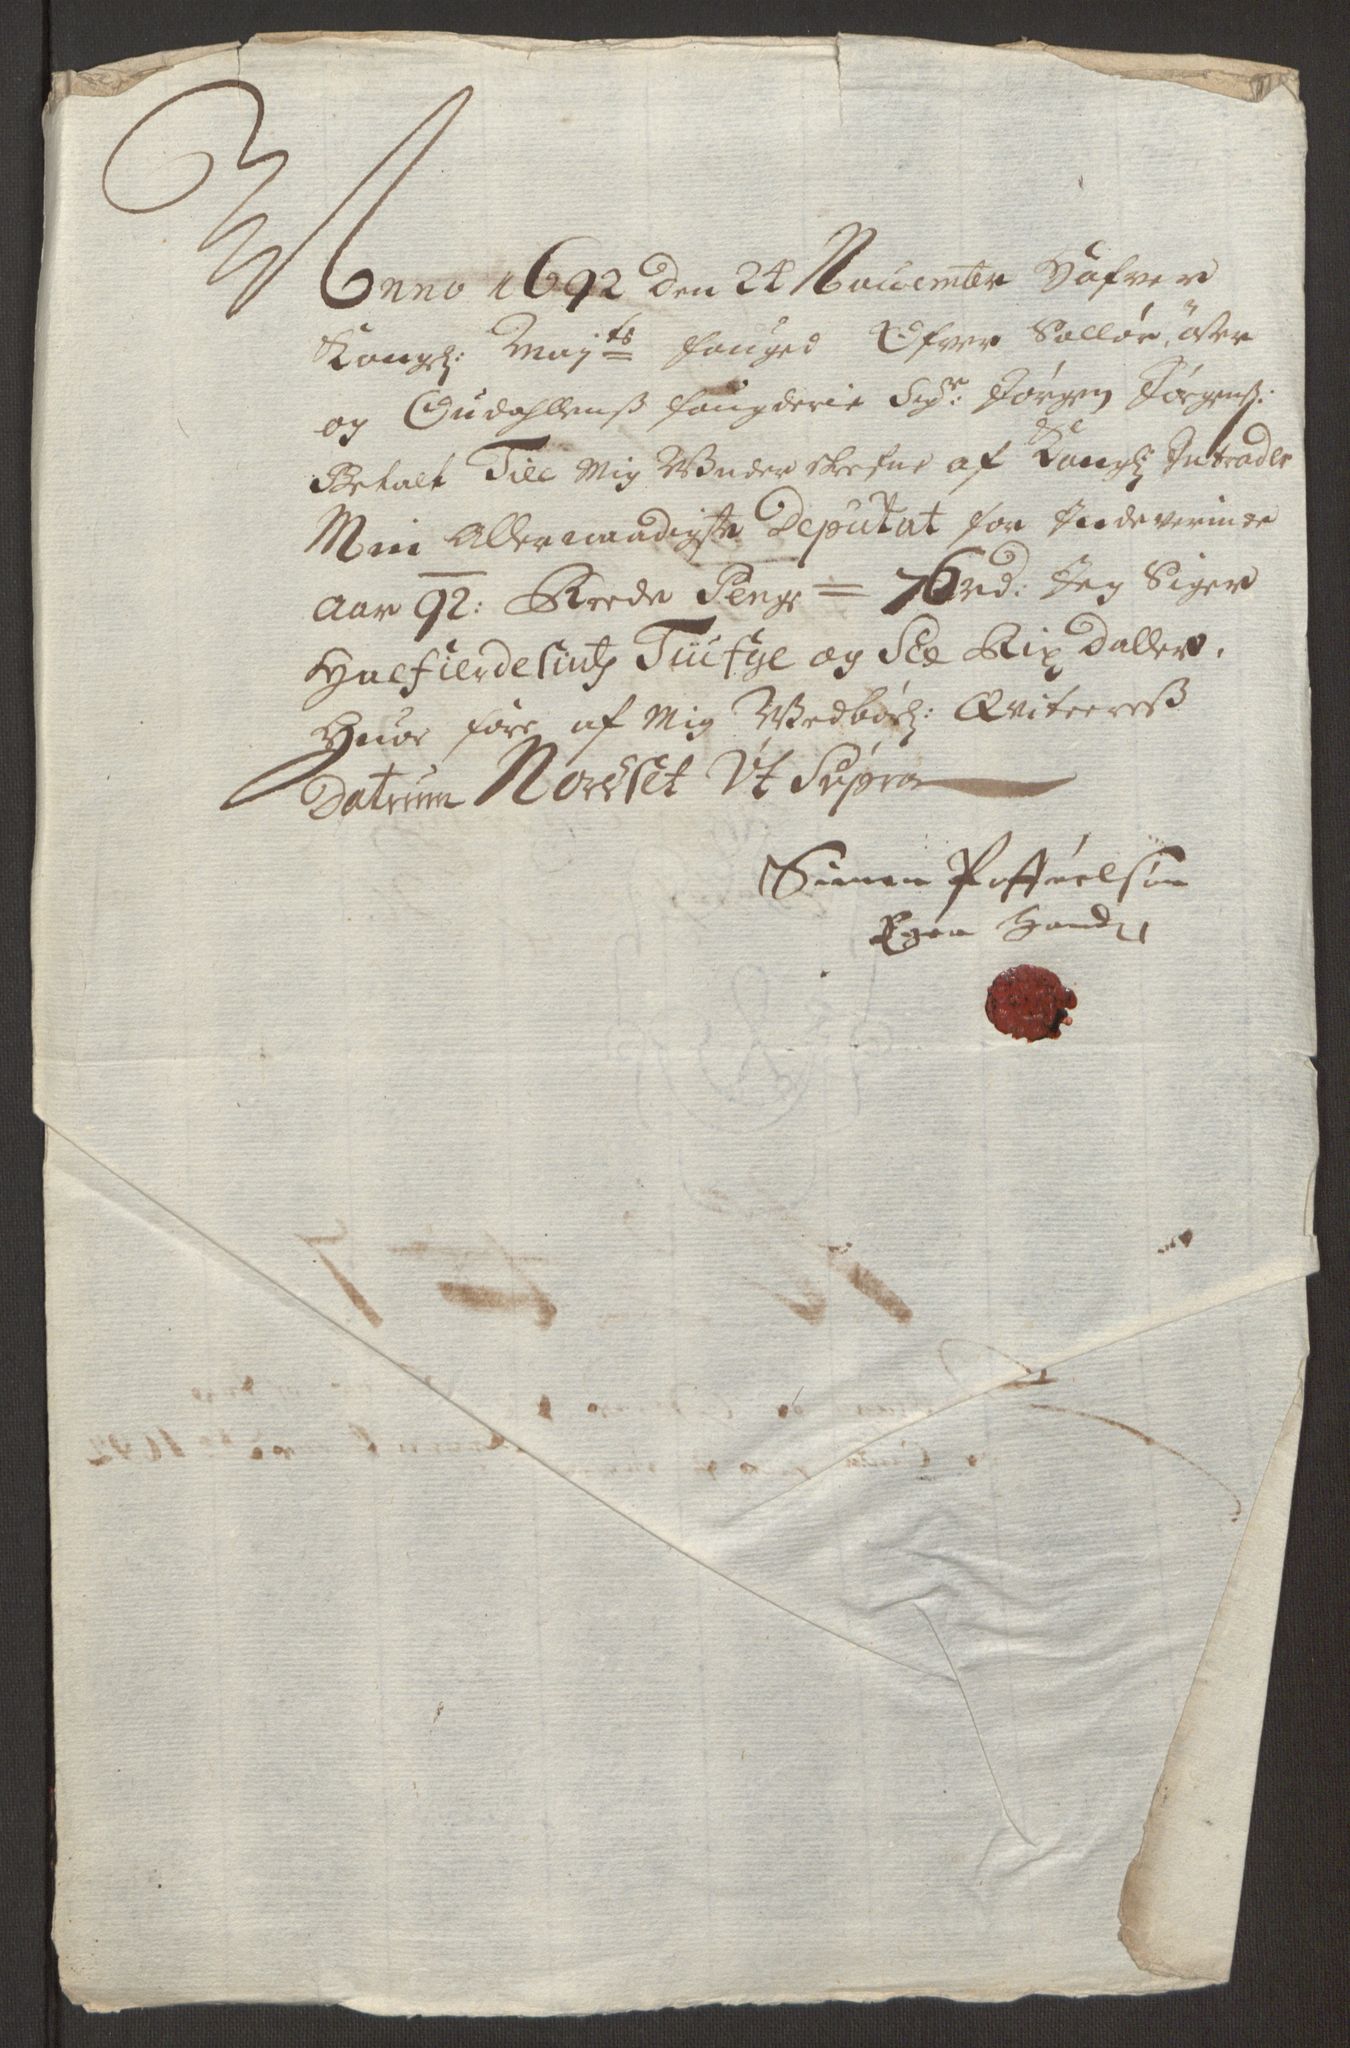 Anno 1692 den 24 November Hafver
Kongl: Maj:ts fouged Ofver Sollør, Øster
og Oudahllens fougderie Sigr: Jørgen Jørgens:
Betalt Till Mig Under skrefne af Kongl Intrader
Min Allernaadigste Deputat for Indeverinde
Aar 92: Reede Penge = 76 rd: Jeg Siger
Halfierdesints Tiufge og Sex Rix Daller.
Huor fore af Mig Vedbørl: Qviteeres
Datum Norset Ut Supra
Simen
Egen Hand